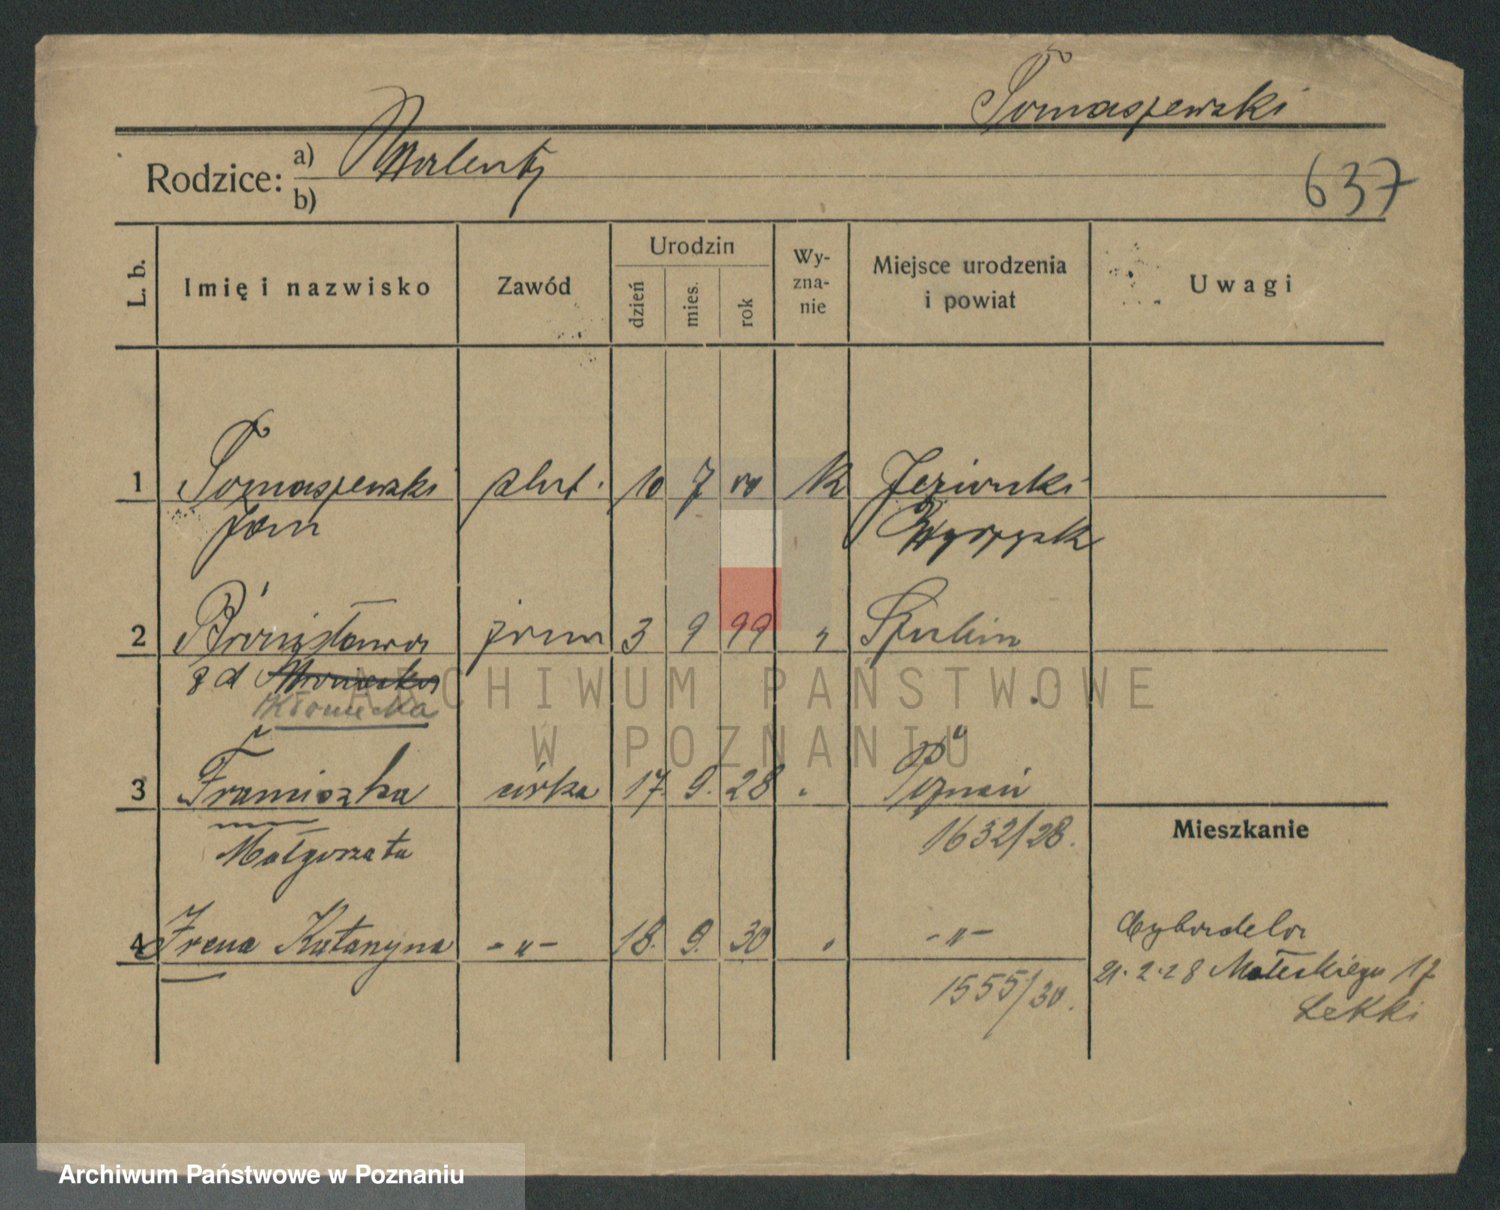 Tomaszewski
Rodzice: a) Walenty
b)
637
L. b. Imię i nazwisko Zawód Urodzin dzień mies. rok Wy-zna-nie Miejsce urodzenia i powiat Uwagi
1 Tomaszewski plut. 10 7 00 rk Jeziorki
Jan Wyrzysk
2 Bronisława żona 3 9 99 " Szubin
zd
Kłonecka
3 Franciszka córka 17. 9. 28 " Poznań
Małgorzata 1632/28.
Mieszkanie
4 Irena Katarzyna -"- 18. 9. 30 " -"-
1555/30.
Cytadela
21.2.28 Małeckiego 17
Lekki
ARCHIWUM PAŃSTWOWE
W POZNANIU
Archiwum Państwowe w Poznaniu